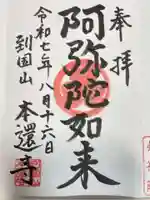 奉拝
阿弥陀如来
令和七年八月十六日
到国山
本還寺